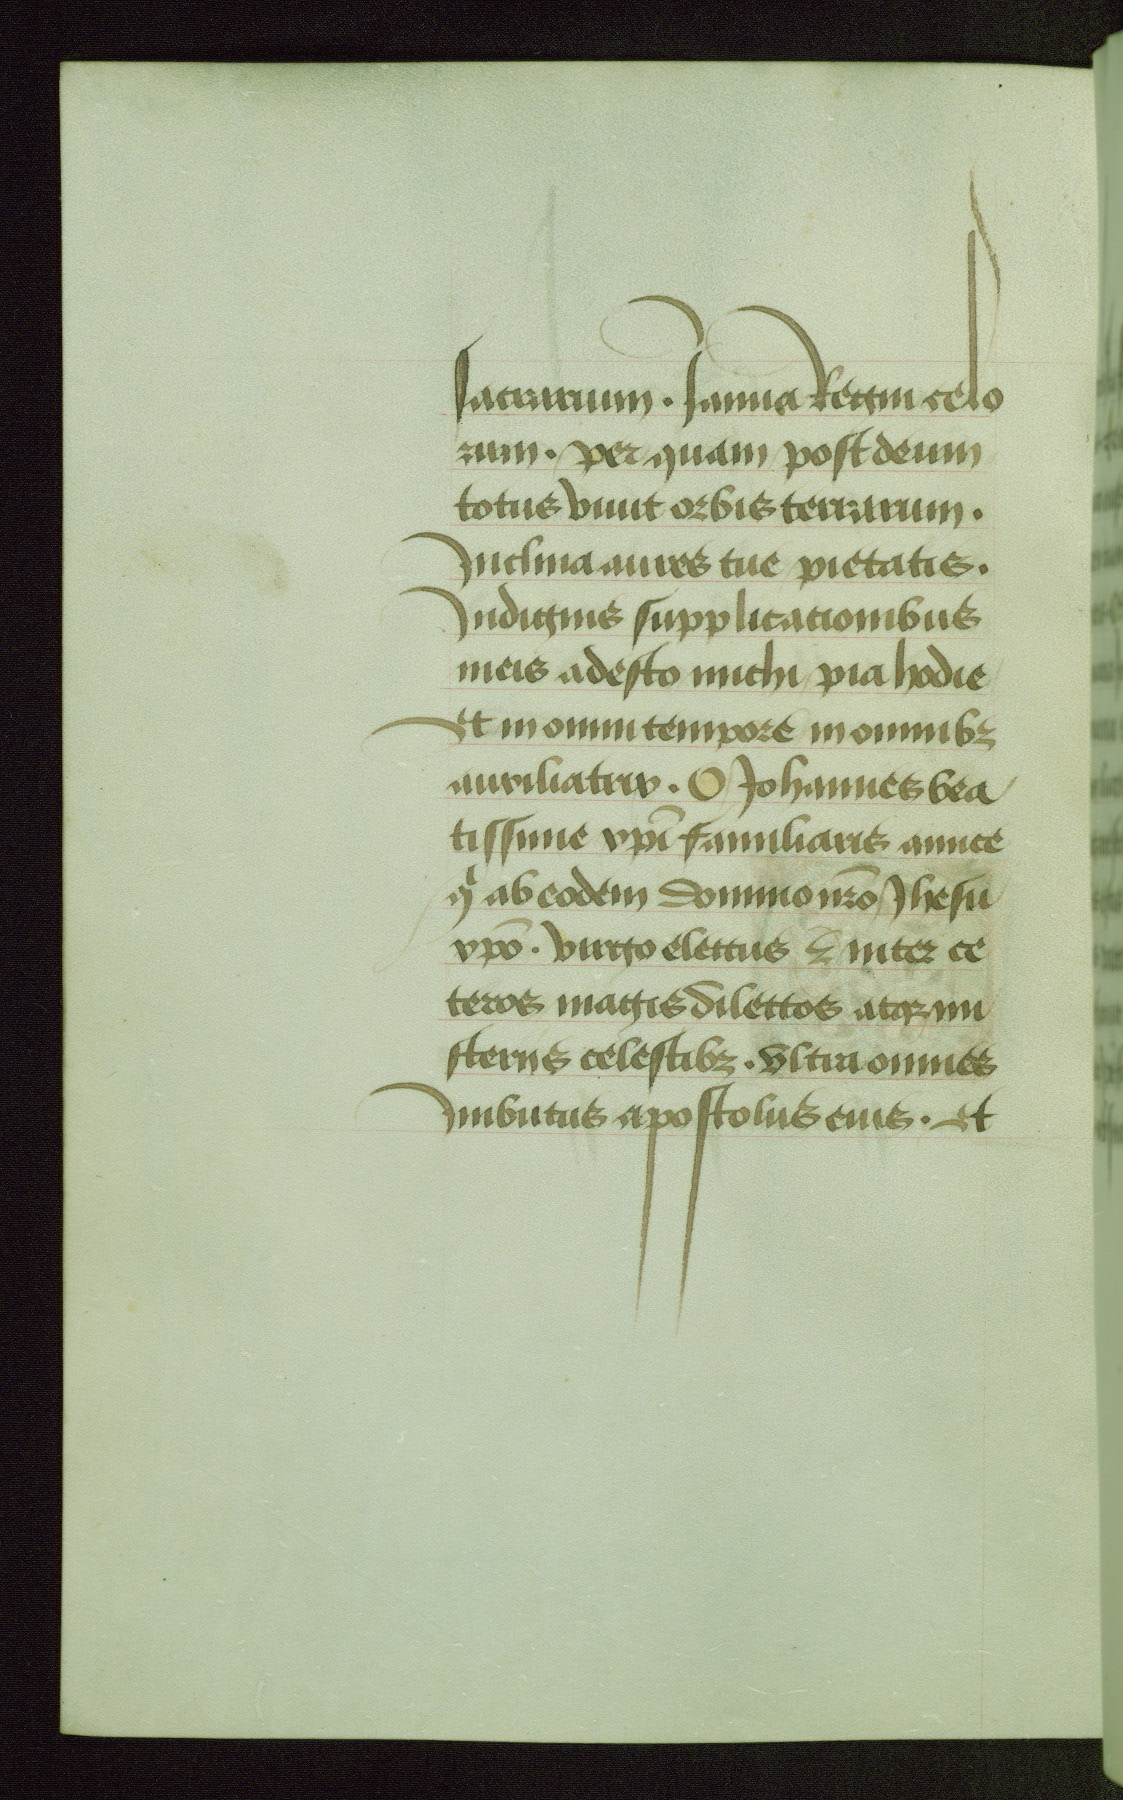 sacrarium. Janua Regni celo
rum. per quam post deum
totus viuit orbis terrarum.
Inclina aures tue pietatis.
Indignis supplicationibus
meis adesto michi pia hodie
Et in omni tempore in omnibz
auxiliatrix. O Johannes bea
tissime xpi familiaris amice
q ab eodem domino nr̄o Jhesu
xpō. virgo electus & inter ce
teros magis dilectos atqz mi
sterijs celestibz. vltra omnes
Inbutus apostolus eius. Et